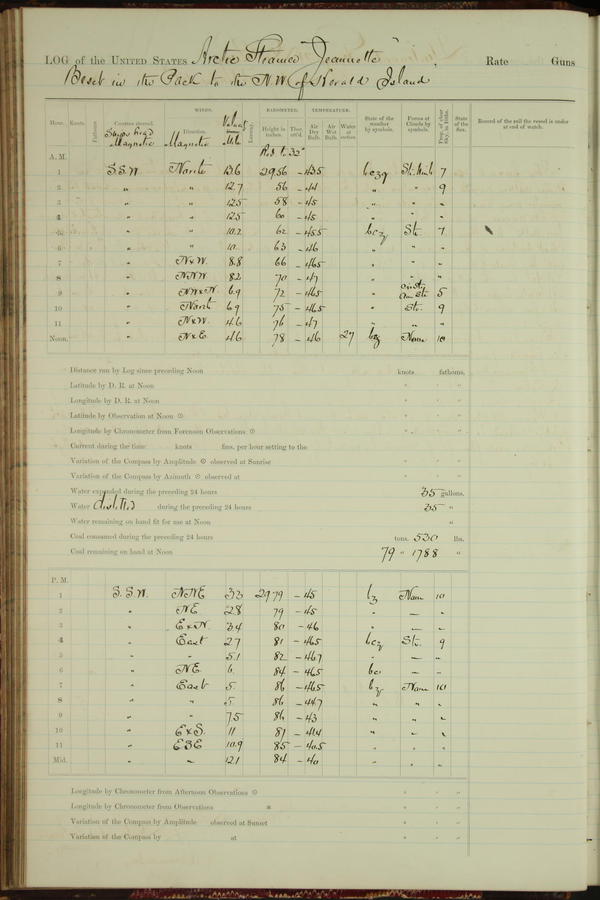 LOG of the UNITED STATES Arctic Steamer "Jeannette", Rate Guns
Beset in the Pack to the N.W. of Herald Island.
WINDS. BAROMETER. TEMPERATURE.
Hour. Knots. Fathoms. Courses steered. Direction. Height in inches. Ther. att'd. Air Dry Bulb. Air Wet Bulb. Water at surface. State of the weather by symbols. Forms of Clouds by symbols. Prop. of clear Sky, in 10ths. State of the Sea. Record of the sail the vessel is under at end of watch.
Ships head Magnetic Magnetic
A. M. Red. to 32°
1 S.S.W. North 13.6 29.56 - 43.5 bczq 7
2 " " 12.7 56 - 44 " " 9
3 " " 12.5 58 - 45 " " "
4 " " 12.5 60 - 45 " " "
5 " " 10.2 62 - 45.5 bcz Str. 7
6 " " 10. 63 - 46 " " "
7 " NxW. 8.8 66 - 46.5 " " "
8 " NNW 8.2 70 - 47 " " "
9 " NWxN. 6.9 72 - 46.5 " 5
10 " North 6.9 75 - 46.5 " Str. 9
11 " NxW. 4.6 76 - 47 " " "
Noon. " NxE. 4.6 78 - 46 27 bz None 10
Distance run by Log since preceding Noon knots fathoms.
Latitude by D. R. at Noon ° ' "
Longitude by D. R. at Noon ° ' "
Latitude by Observation at Noon ☉ ° ' "
Longitude by Chronometer from Forenoon Observations ☉ ° ' "
Current during the time knots fms. per hour setting to the
Variation of the Compass by Amplitude ☉ observed at Sunrise ° ' "
Variation of the Compass by Azimuth ☉ observed at ° ' "
Water expended during the preceding 24 hours 35 gallons.
Water distilled during the preceding 24 hours 35 "
Water remaining on hand fit for use at Noon "
Coal consumed during the preceding 24 hours tons. 530 lbs.
Coal remaining on hand at Noon 79 " 1788 "
P. M.
1 S.S.W. NNE 3.3 29.79 - 45 bz None 10
2 " NE 2.8 79 - 45 " — —
3 " ExN. 3.4 80 - 46 " — —
4 " East 2.7 81 - 46.5 bcz Str. 9
5 " " 5.1 82 - 46.7 " — —
6 " NE. 6. 84 - 46.5 bc — —
7 " East 5. 86 - 46.5 bz None 10
8 " " 5. 86 - 44.7 " " "
9 " " 7.5 86 - 43 " " "
10 " ExS. 11 81 - 41.4 " " "
11 " ESE 10.9 85 - 40.5 " " "
Mid. " " 12.1 84 - 40 " " "
Longitude by Chronometer from Afternoon Observations ☉ ° ' "
Longitude by Chronometer from Observations * ° ' "
Variation of the Compass by Amplitude observed at Sunset ° ' "
Variation of the Compass by at ° ' "